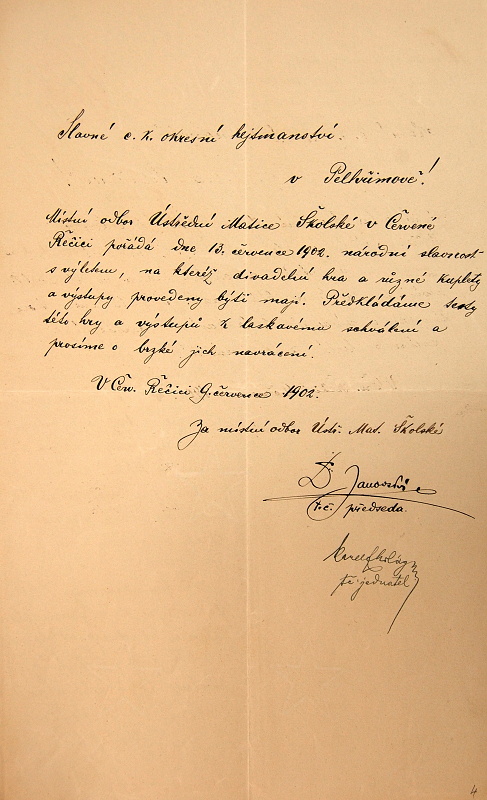 Slavné c. k. okresní hejtmanství.
v Pelhřimově!
Místní odbor Ústřední Matice Školské v Červené
Řečici pořádá dne 13. července 1902. národní slavnost
s výletem, na kteréž divadelní hra a různé kuplety
a výstupy provedeny býti mají. Předkládáme texty
této hry a výstupů k laskavému schválení a
prosíme o brzké jich navrácení.
V Čer. Řečici 9. července 1902.
Za místní odbor Ústř. Mat. Školské
Dr Janovský
t. č. předseda.
jednatel
4